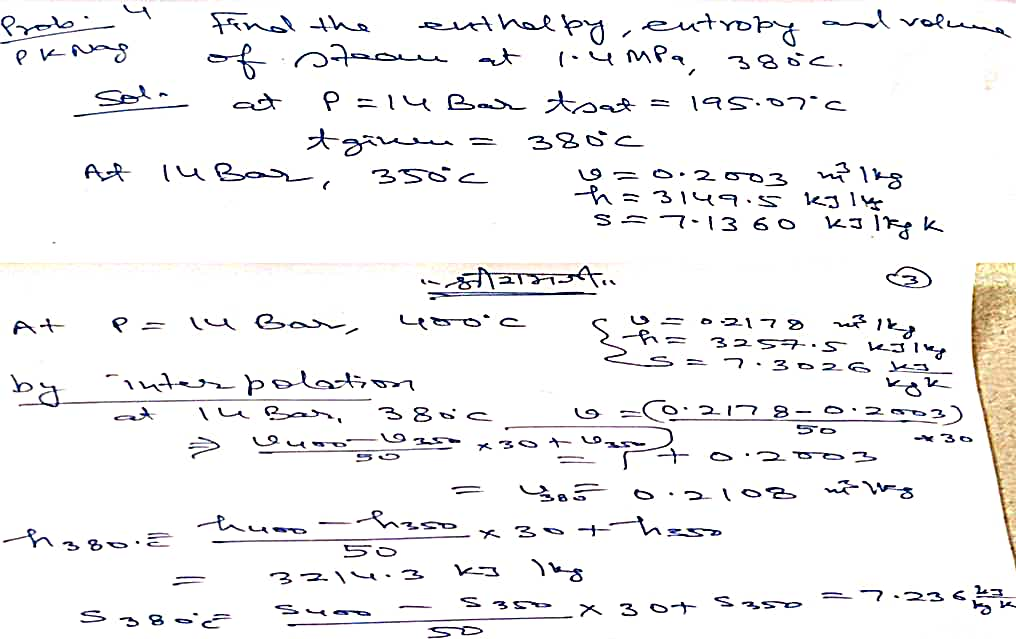 Prob:- 4 Find the enthalpy, entropy and volume
P K Nag of steam at 1.4 MPa, 380°C.
Sol. at P = 14 Bar tsat = 195.07°C
tgiven = 380°C
At 14 Bar, 350°C v = 0.2003 m³/kg
h = 3149.5 kJ/kg
s = 7.1360 kJ/kg K
3
At P = 14 Bar, 400°C { v = 0.2178 m³/kg
h = 3257.5 kJ/kg
s = 7.3026 kJ/kg K
by interpolation
at 14 Bar, 380°C v = (0.2178 - 0.2003)/50 × 30
⇒ (v400 - v350)/50 × 30 + v350 = + 0.2003
= v380 = 0.2108 m³/kg
h380 = (h400 - h350)/50 × 30 + h350
= 3214.3 kJ/kg
s380°C = (s400 - s350)/50 × 30 + s350 = 7.236 kJ/kg K